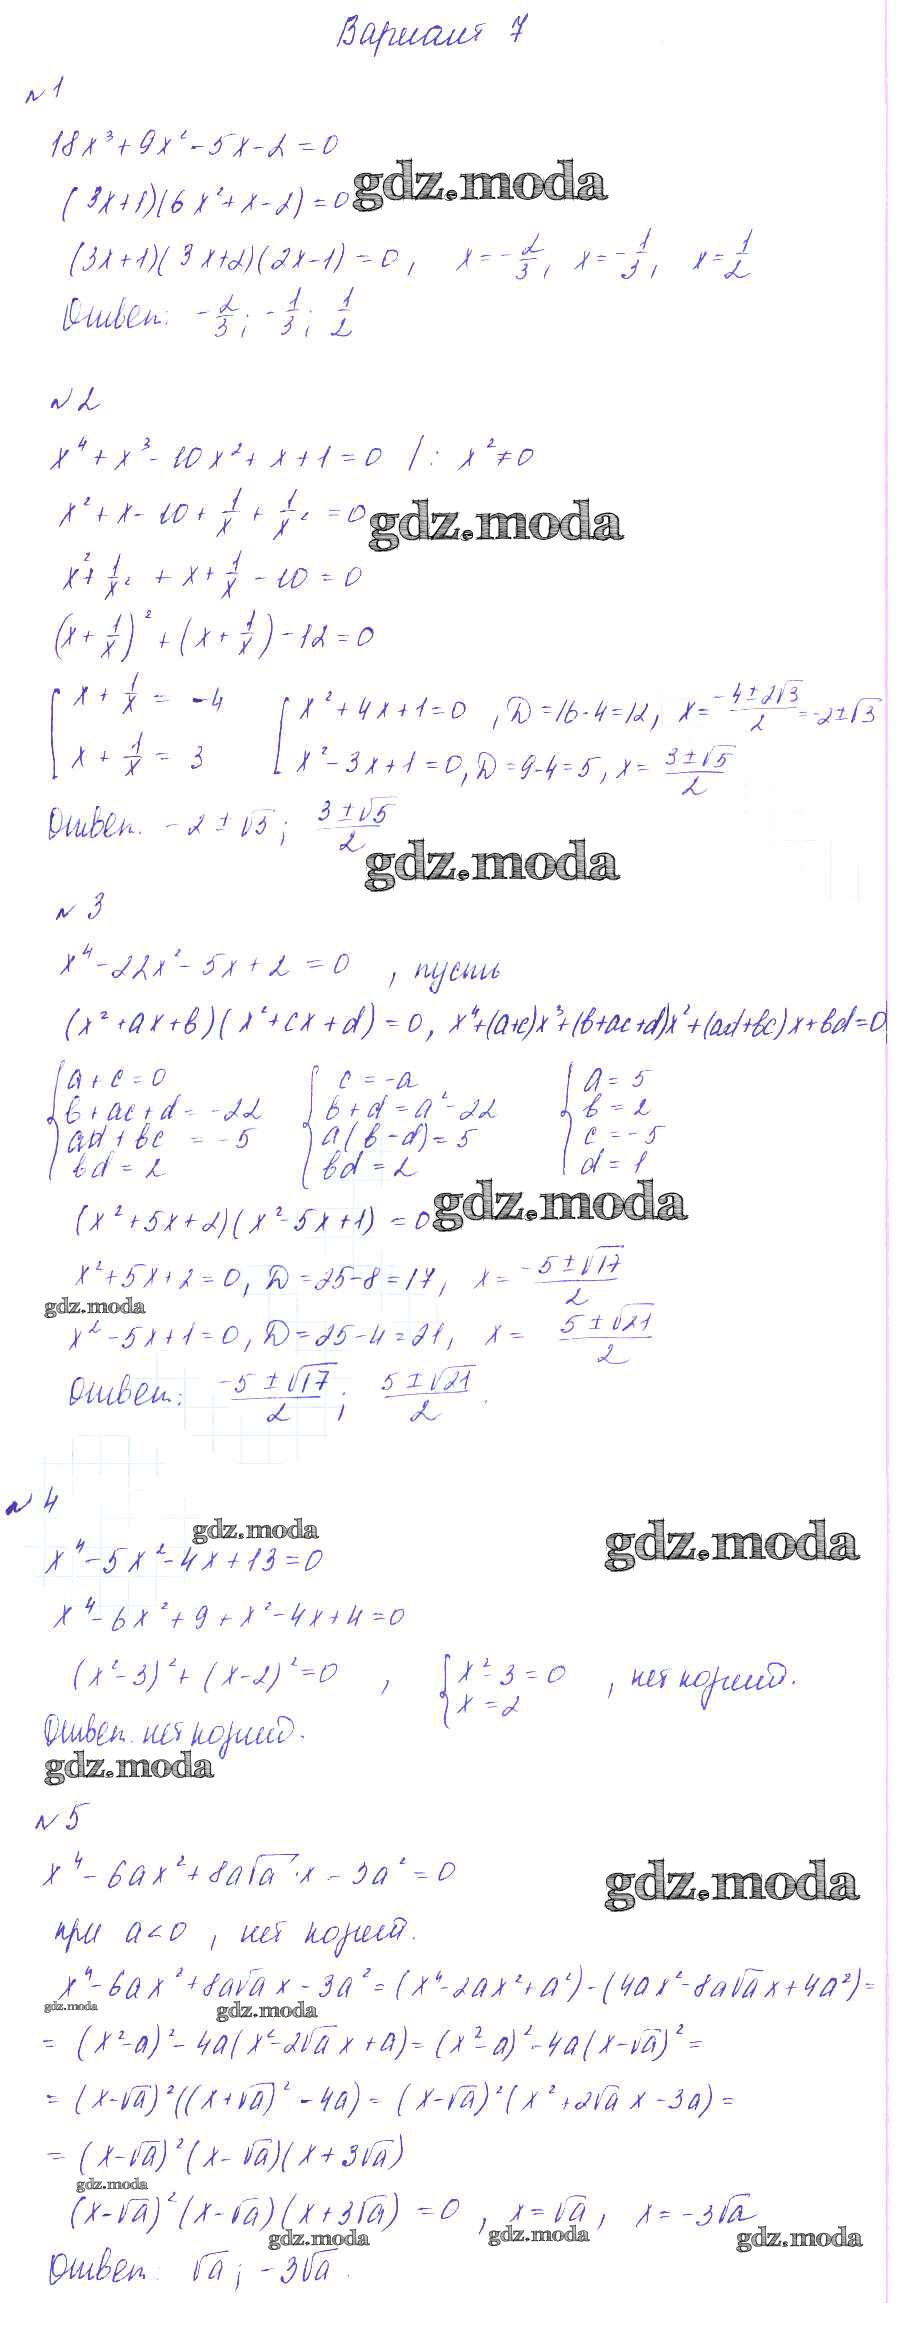 Вариант 7
№1
18x³+9x²-5x-2=0
(3x+1)(6x²+x-2)=0
gdz.moda
(3x+1)(3x+2)(2x-1)=0, x=-2/3, x=-1/3, x=1/2
Ответ: -2/3; -1/3; 1/2
№2
x⁴+x³-10x²+x+1=0 |: x²≠0
x²+x-10+1/x+1/x²=0
gdz.moda
x²+1/x²+x+1/x-10=0
(x+1/x)²+(x+1/x)-12=0
[x+1/x=-4 [x²+4x+1=0, D=16-4=12, x=(-4±2√3)/2=-2±√3
x+1/x=3 x²-3x+1=0, D=9-4=5, x=(3±√5)/2
Ответ. -2±√5; (3±√5)/2
gdz.moda
№3
x⁴-22x²-5x+2=0, пусть
(x²+ax+b)(x²+cx+d)=0, x⁴+(a+c)x³+(b+ac+d)x²+(ad+bc)x+bd=0
{a+c=0 {c=-a {a=5
b+ac+d=-22 b+d=a²-22 b=2
ad+bc=-5 a(b-d)=5 c=-5
bd=2 bd=2 d=1
(x²+5x+2)(x²-5x+1)=0
gdz.moda
x²+5x+2=0, D=25-8=17, x=(-5±√17)/2
gdz.moda
x²-5x+1=0, D=25-4=21, x=(5±√21)/2
Ответ: (-5±√17)/2; (5±√21)/2.
№4
gdz.moda
gdz.moda
x⁴-5x²-4x+13=0
x⁴-6x²+9+x²-4x+4=0
(x²-3)²+(x-2)²=0, {x²-3=0, нет корней.
x=2
Ответ. нет корней.
gdz.moda
№5
x⁴-6ax²+8a√a·x-3a²=0
gdz.moda
при a<0, нет корней.
x⁴-6ax²+8a√a x-3a²=(x⁴-2ax²+a²)-(4ax²-8a√a x+4a²)=
gdz.moda
gdz.moda
=(x²-a)²-4a(x²-2√a x+a)=(x²-a)²-4a(x-√a)²=
=(x-√a)²((x+√a)²-4a)=(x-√a)²(x²+2√a x-3a)=
=(x-√a)²(x-√a)(x+3√a)
gdz.moda
(x-√a)²(x-√a)(x+3√a)=0, x=√a, x=-3√a
gdz.moda
gdz.moda
gdz.moda
Ответ: √a; -3√a.